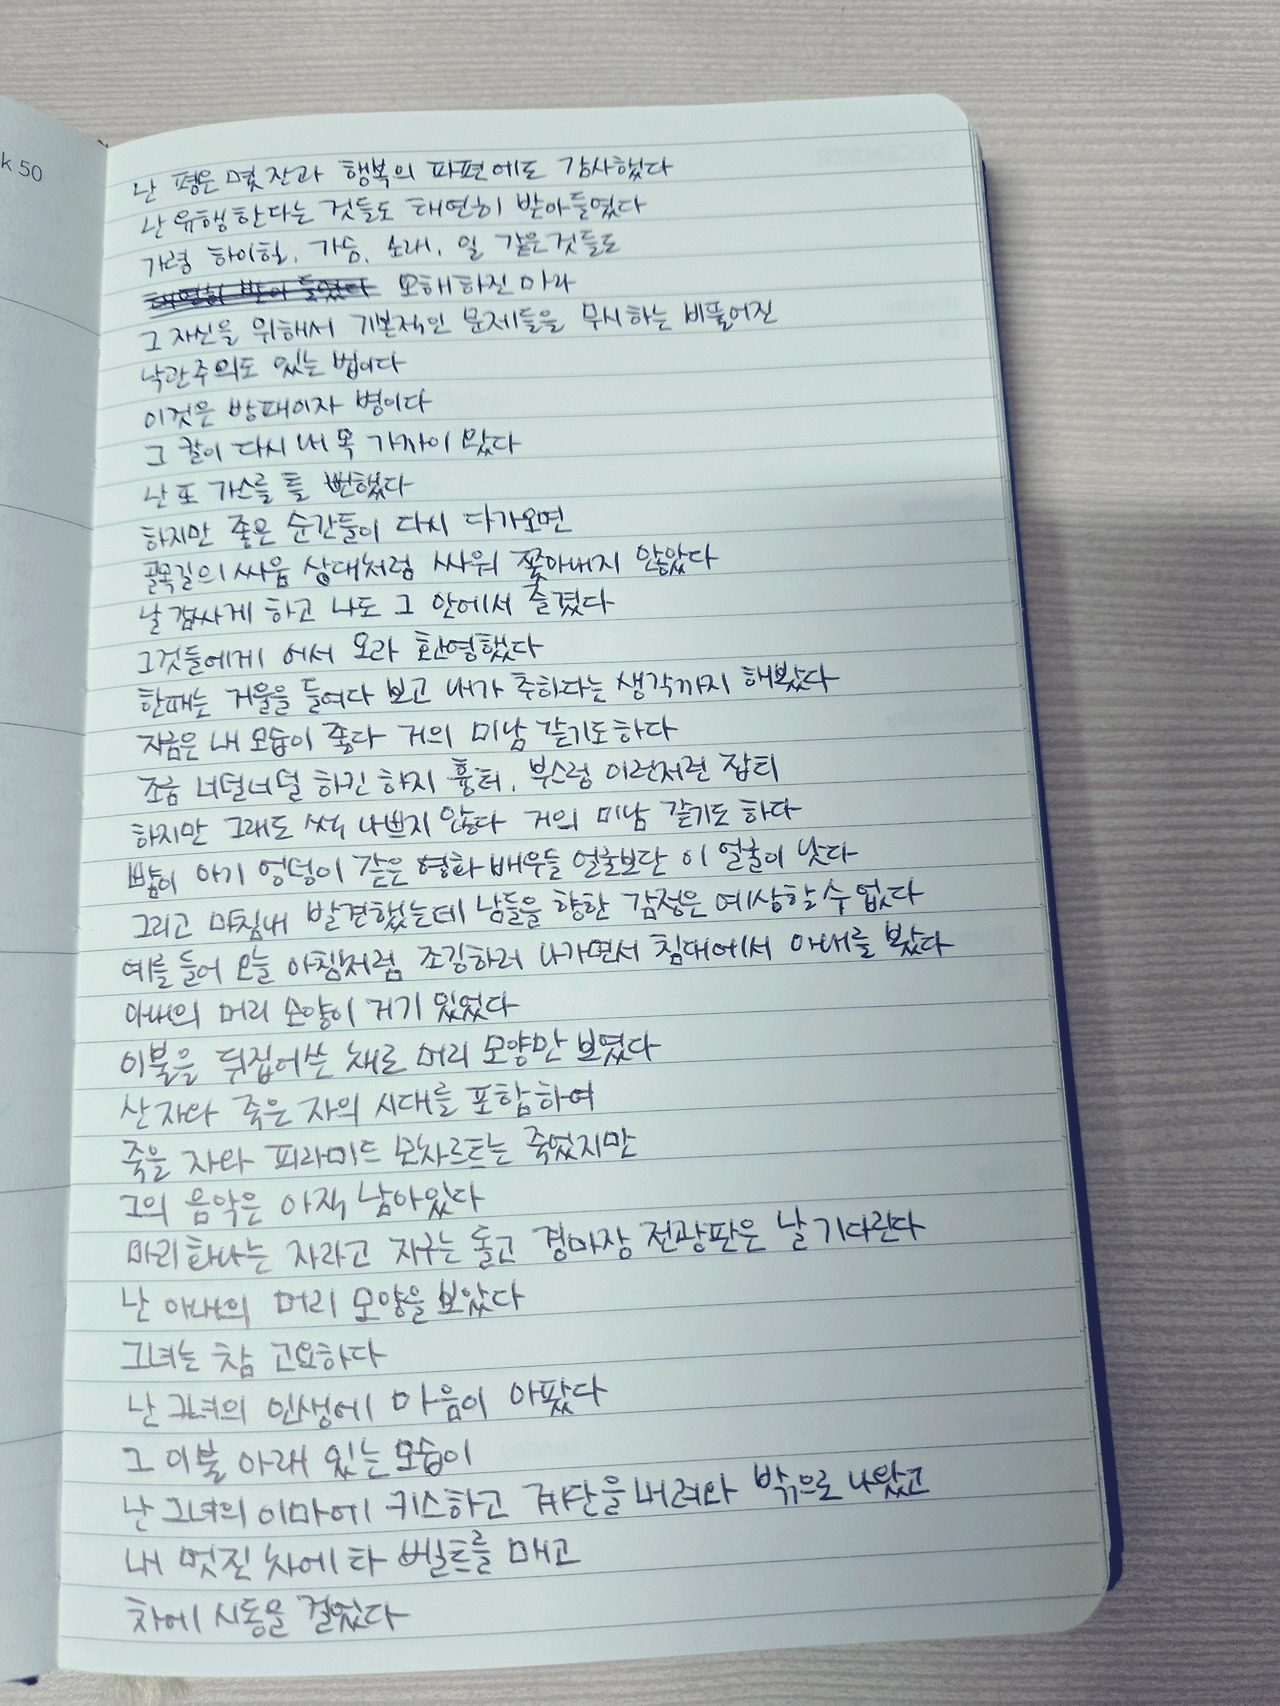 k 50
난 평은 몇 잔과 행복의 파편에도 감사했다
난 유행한다는 것들도 태연히 받아들였다
가령 하이힐, 가슴, 노래, 일 같은 것들도
태연히 받아 들였다 오해하진 마라
그 자신을 위해서 기본적인 문제들을 무시하는 비뚤어진
낙관주의도 있는 법이다
이것은 방패이자 병이다
그 칼이 다시 내 목 가까이 왔다
난 또 가스를 틀 뻔했다
하지만 좋은 순간들이 다시 다가오면
골목길의 싸움 상대처럼 싸워 쫓아내지 않았다
날 감싸게 하고 나도 그 안에서 즐겼다
그것들에게 어서 오라 환영했다
한때는 거울을 들여다 보고 내가 추하다는 생각까지 해봤다
지금은 내 모습이 좋다 거의 미남 같기도하다
조금 너덜너덜 하긴 하지 흉터, 부스럼 이런저런 잡티
하지만 그래도 썩 나쁘지 않다 거의 미남 같기도 하다
뺨이 아기 엉덩이 같은 영화 배우들 얼굴보단 이 얼굴이 낫다
그리고 마침내 발견했는데 남들을 향한 감정은 예상할 수 없다
예를 들어 오늘 아침처럼 조깅하러 나가면서 침대에서 아내를 봤다
아내의 머리 모양이 거기 있었다
이불을 뒤집어쓴 채로 머리 모양만 보였다
산 자와 죽은 자의 시대를 포함하여
죽을 자와 피라미드 모차르트는 죽었지만
그의 음악은 아직 남아있다
마리화나는 자라고 지구는 돌고 경마장 전광판은 날 기다린다
난 아내의 머리 모양을 보았다
그녀는 참 고요하다
난 그녀의 인생에 마음이 아팠다
그 이불 아래 있는 모습이
난 그녀의 이마에 키스하고 계단을 내려와 밖으로 나왔고
내 멋진 차에 타 벨트를 매고
차에 시동을 걸었다